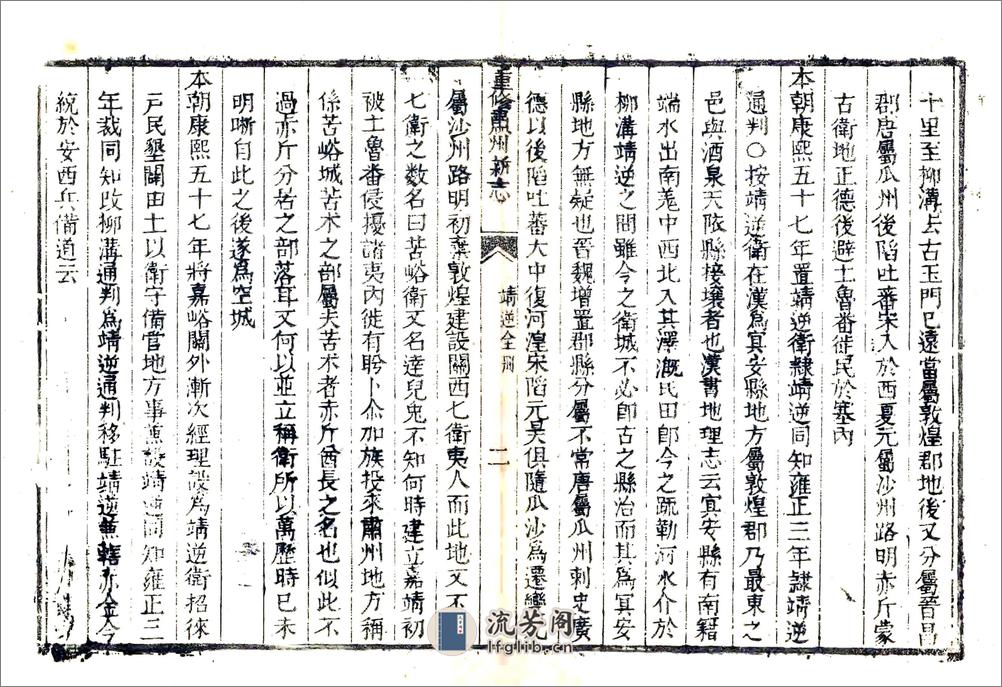 十里至柳溝上古玉門已遠當屬敦煌郡地後又分屬晉昌
郡唐屬瓜州後陷吐蕃宋入於西夏元屬沙州路明赤斤蒙
古衛地正德後避土魯番徙民於塞內
本朝康熙五十七年置靖逆衛隸靖逆同知雍正三年隸靖逆
通判○按靖逆衛在漢爲冥安縣地方屬敦煌郡乃最東之
邑與酒泉天依縣接壤者也漢書地理志云冥安縣有南籍
端水出南羌中西北入其澤溉民田卽今之疏勒河水介於
柳溝靖逆之間雖今之衛城不必卽古之縣治而其爲冥安
縣地方無疑也晉魏增置郡縣分屬不常唐屬瓜州刺史廣
德以後陷吐蕃大中復河湟宋陷元昊俱隨瓜沙爲遷變元
重修肅州新志 靖逆全册 二
屬沙州路明初棄敦煌建設關西七衛夷人而此地又不
七衛之數名曰苦峪衛又名達兒兎不知何時建立嘉靖初
被土魯番侵擾諸夷內徙有聆卜尒加族投來肅州地方稱
係苦峪城苦术之部屬夫苦术者赤斤酋長之名也似此不
過赤斤分居之部落耳又何以並立稱衛所以萬歷時已未
明晰自此之後遂爲空城
本朝康熙五十七年將嘉峪關外漸次經理設爲靖逆衛招徠
戸民墾闢田土以衛守備官地方事兼設靖逆同知雍正三
年裁同知改柳溝通判爲靖逆通判移駐靖逆兼轄赤金今
統於安西兵備道云
流芳阁
lfglib.cn